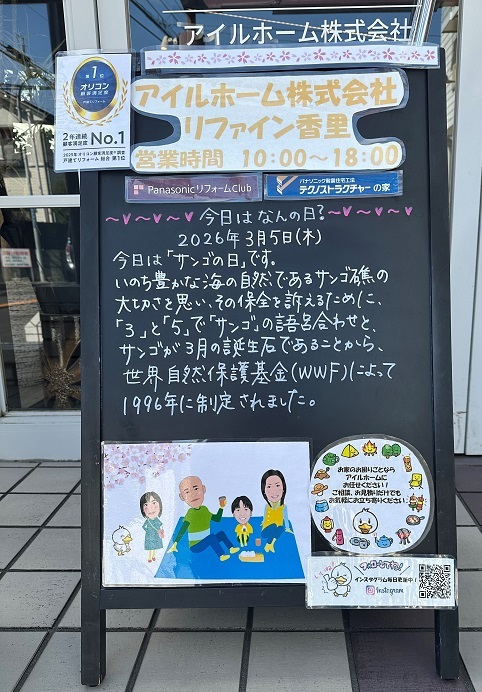 アイルホーム株式会社
第1位
オリコン
顧客満足度
2年連続
顧客満足度
No.1
アイルホーム株式会社
リファイン香里
営業時間 10:00~18:00
PanasonicリフォームClub
パナソニック耐震住宅工法
テクノストラクチャーの家
今日はなんの日?
2026年3月5日(木)
今日は「サンゴの日」です。
いのち豊かな海の自然であるサンゴ礁の
大切さを思い、その保全を訴えるために、
「3」と「5」で「サンゴ」の語呂合わせと、
サンゴが3月の誕生石であることから、
世界自然保護基金(WWF)によって
1996年に制定されました。
お家のお困りごとなら
アイルホームに
お任せください!
ご相談、お見積りだけでも
お気軽にお立ち寄りください!
フォローしてね!
インスタグラム毎日更新中!
Instagram